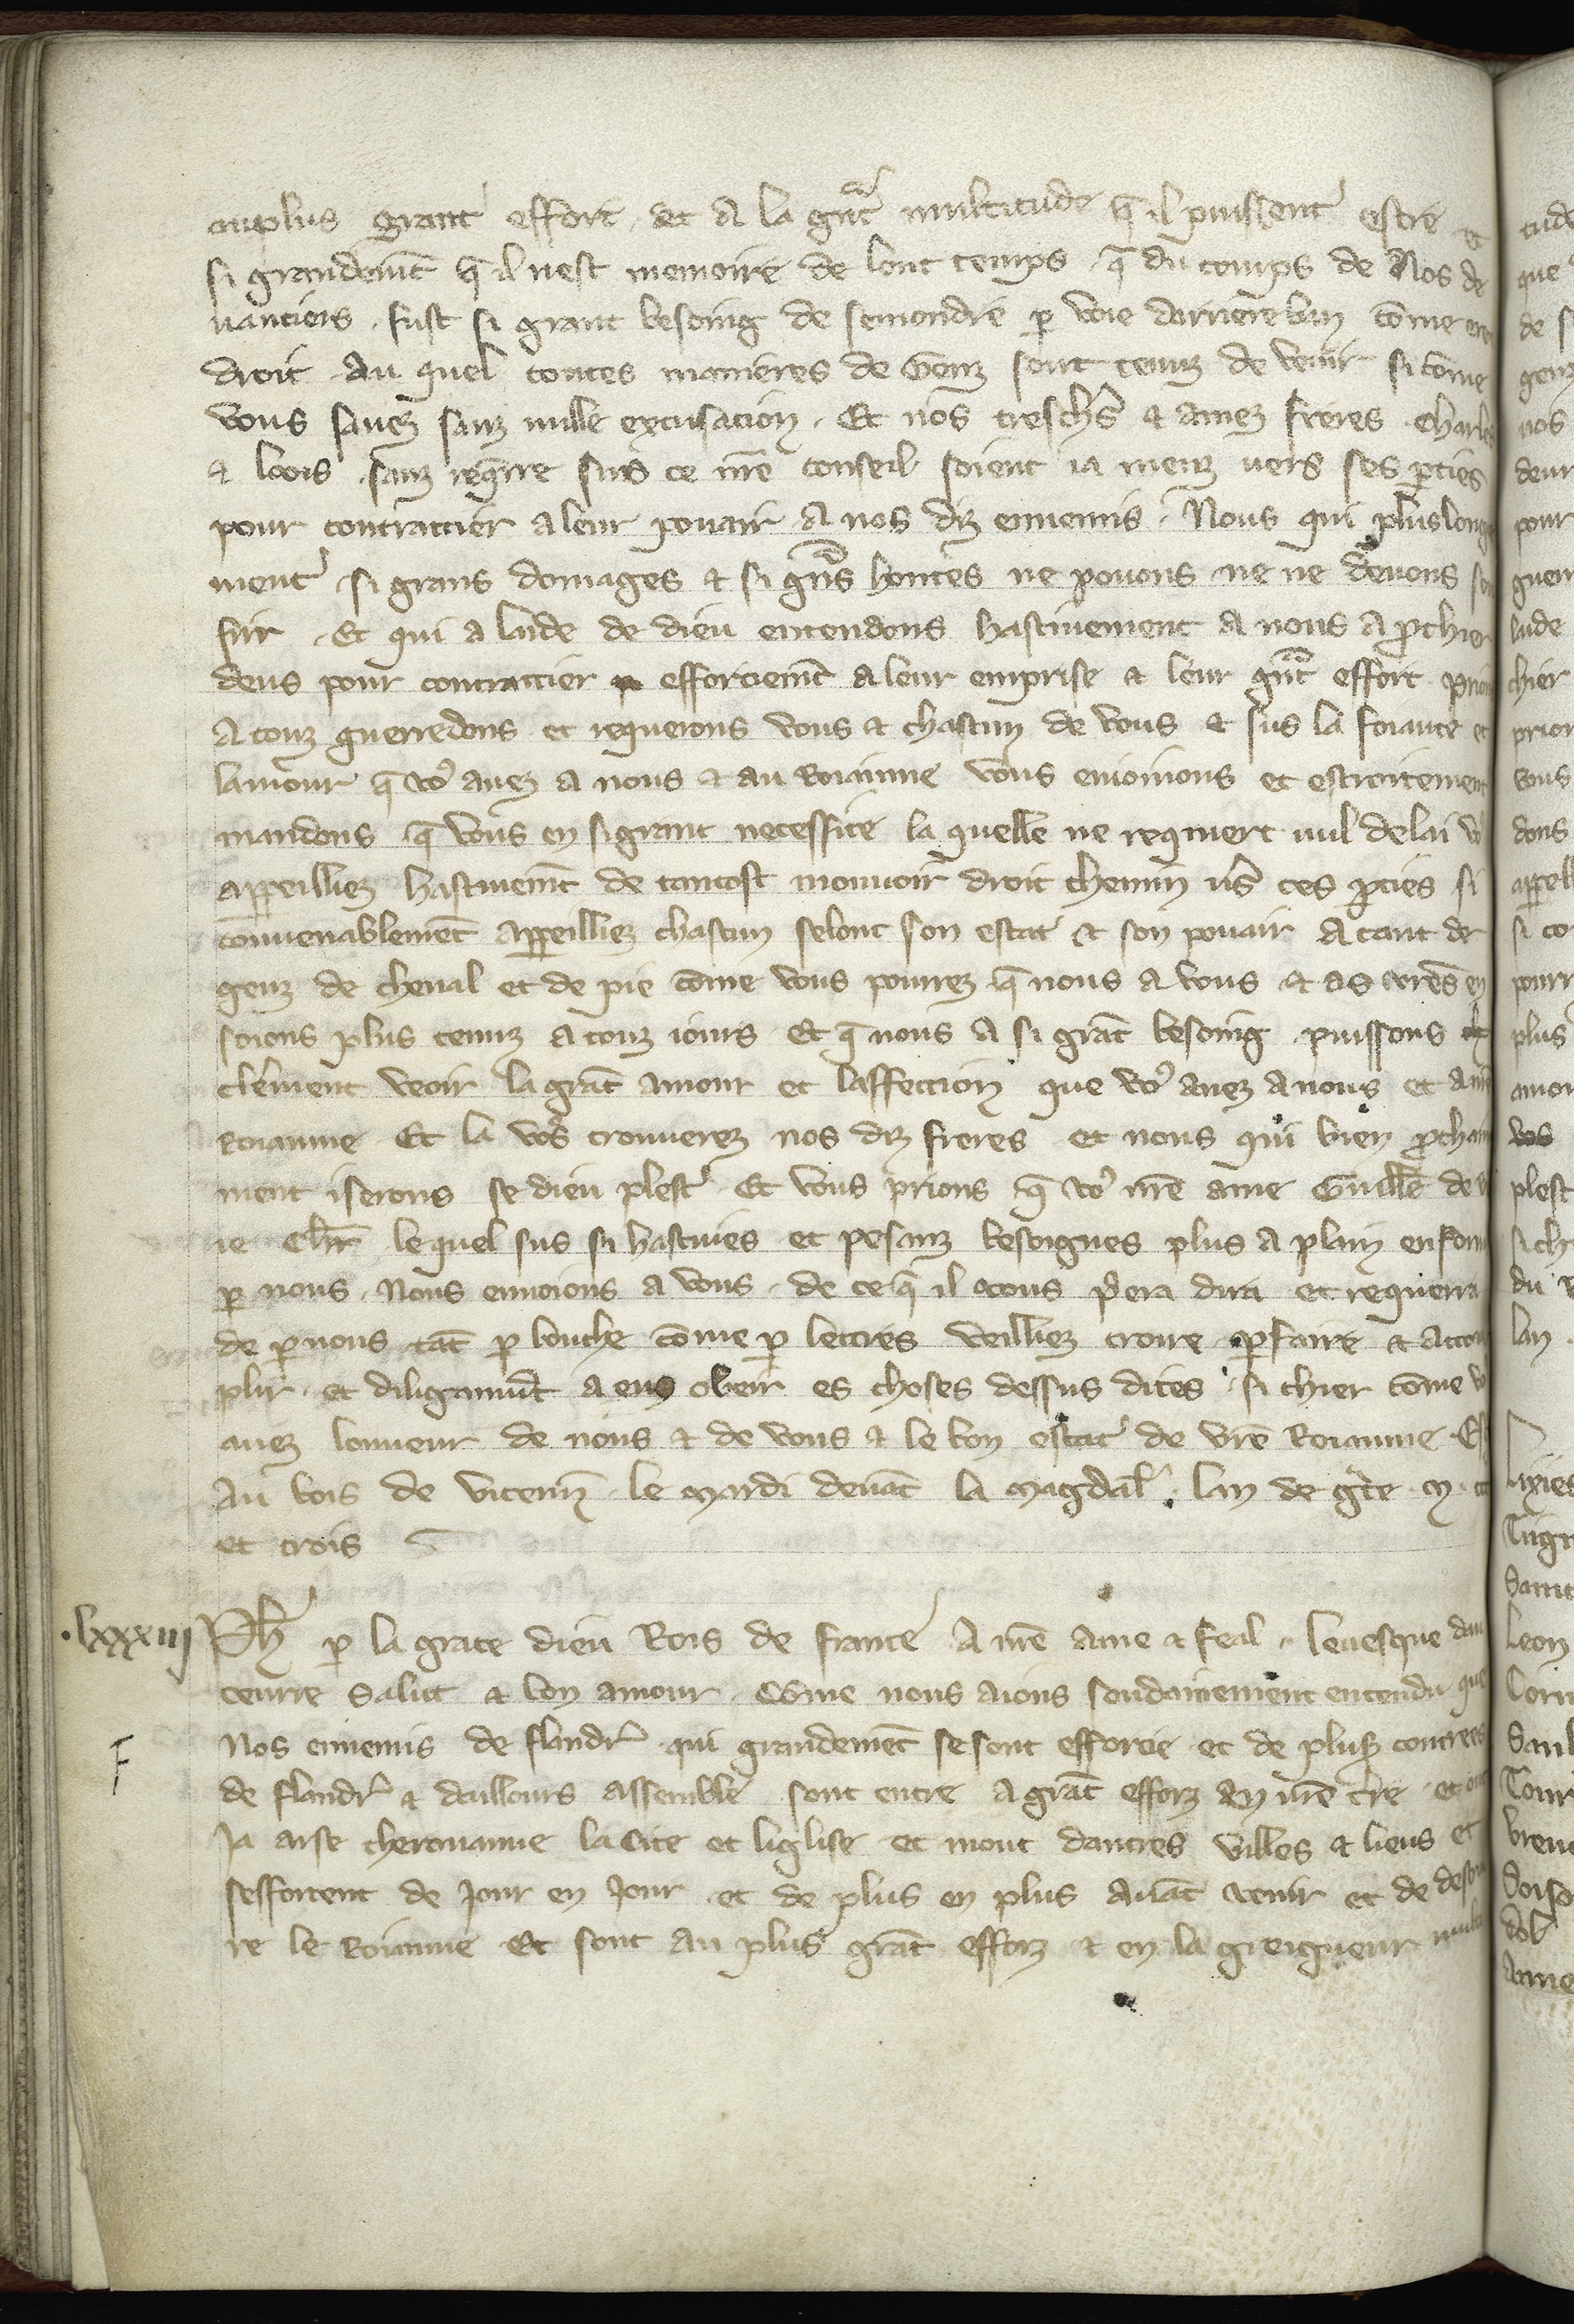 auplus grant effort et a la gñt multitude q̃ il puissent estre et
si grandem̃t q̃ il nest memoire de lonc temps q̃ du temps de Nos de
uanciers fust si grant besoing de semondre p voie darriereban cõme
droit au quel toutes manieres de Genz sont tenuz de venir si cõme
vous sauez sanz nulle excusacion Et nos treschs̃ & amez freres Charles
& loois sanz req̃rre sus ce nr̃e conseil soient ia meuz uers ses pties
pour contraitier a leur pouair a nos diz ennemis Nous qui pluslongue
ment si grans domages & si gñs hontes ne pouons ne ne deuons
frir Et qui a laide de dieu entendons hastiuement a nous aprochier
deus pour contraitier efforciem̃t a leur emprise & leur gñt effort prions
a touz guerredons et requerons vous & chascun de vous & sus la foiaute et
lamour q̃ vo9 auez a nous & au Roiaume vous enioinons et estroitement
mandons q̃ vous en sigrant necessite la quelle ne requiert nul delai
appeilliez hastiuem̃t de tantost mouuoir droit chemin us̃ ces pties si
conuenablemẽt appeilliez chascun selonc son estat & son pouair a tant de
genz de cheual et de pie cõme vous pourrez q̃ nous a vous & as vr̃es en
soions plus tenuz a touz iours Et q̃ nous a si grãt besoing puissons
clerement veoir la grãt amour et laffection que vo9 auez a nous et a nr̃e
Roiaume Et la vos trouuerez nos diz freres et nous qui bien pchaine
ment iserons se dieu plest Et vous prions q̃ vo9 nr̃e ame Guille de
ie Chlr̃ lequel sus si hastiues et pesanz besoignes plus a plain enforme
p nous Nous enuoions a vous de ceq̃ il vous p̃era dira et requerra
de p nous tãt p bouche cõme p lettres veilliez croire pfaire & accom
plir et diligaumt a eus obeir es choses dessus dites si chier cõme vo9
auez lonneur de nous & de vous & le bon estat de vr̃e Roiaume
Au bois de vicenn̄ le mardi deuãt la magdal lan de gr̃ce M
et trois
.lxxxiiij Ph̃ p la grace dieu Rois de france A nr̃e ame & feal levesque dau
ceurre Salut & bon amour Cõme nous aions soudainement entendu que
F Nos ennemis de flandr̃ qui grandemẽt sesont efforcie et de plusr̃ contrees
de flandr̃ & dailleurs assemble sont entre a grãt efforz en nr̃e tr̃e et ont
Ja arse therouanne la cite et liglise et mout dautres villes & lieus et
sefforcent de Jour en Jour et de plus en plus auãt venir et de
re le Roiaume Et sont au plus grãt efforz & en la greigneur
tude
que
de s
genz
nos
deur
pour
guem
laide
chier
prion
vous
dons
appell
si co
pourr
plus
amou
vos
plest
si ch
du r
lan
Lixies
Leon
Corn
Saul
Tour
Soiss